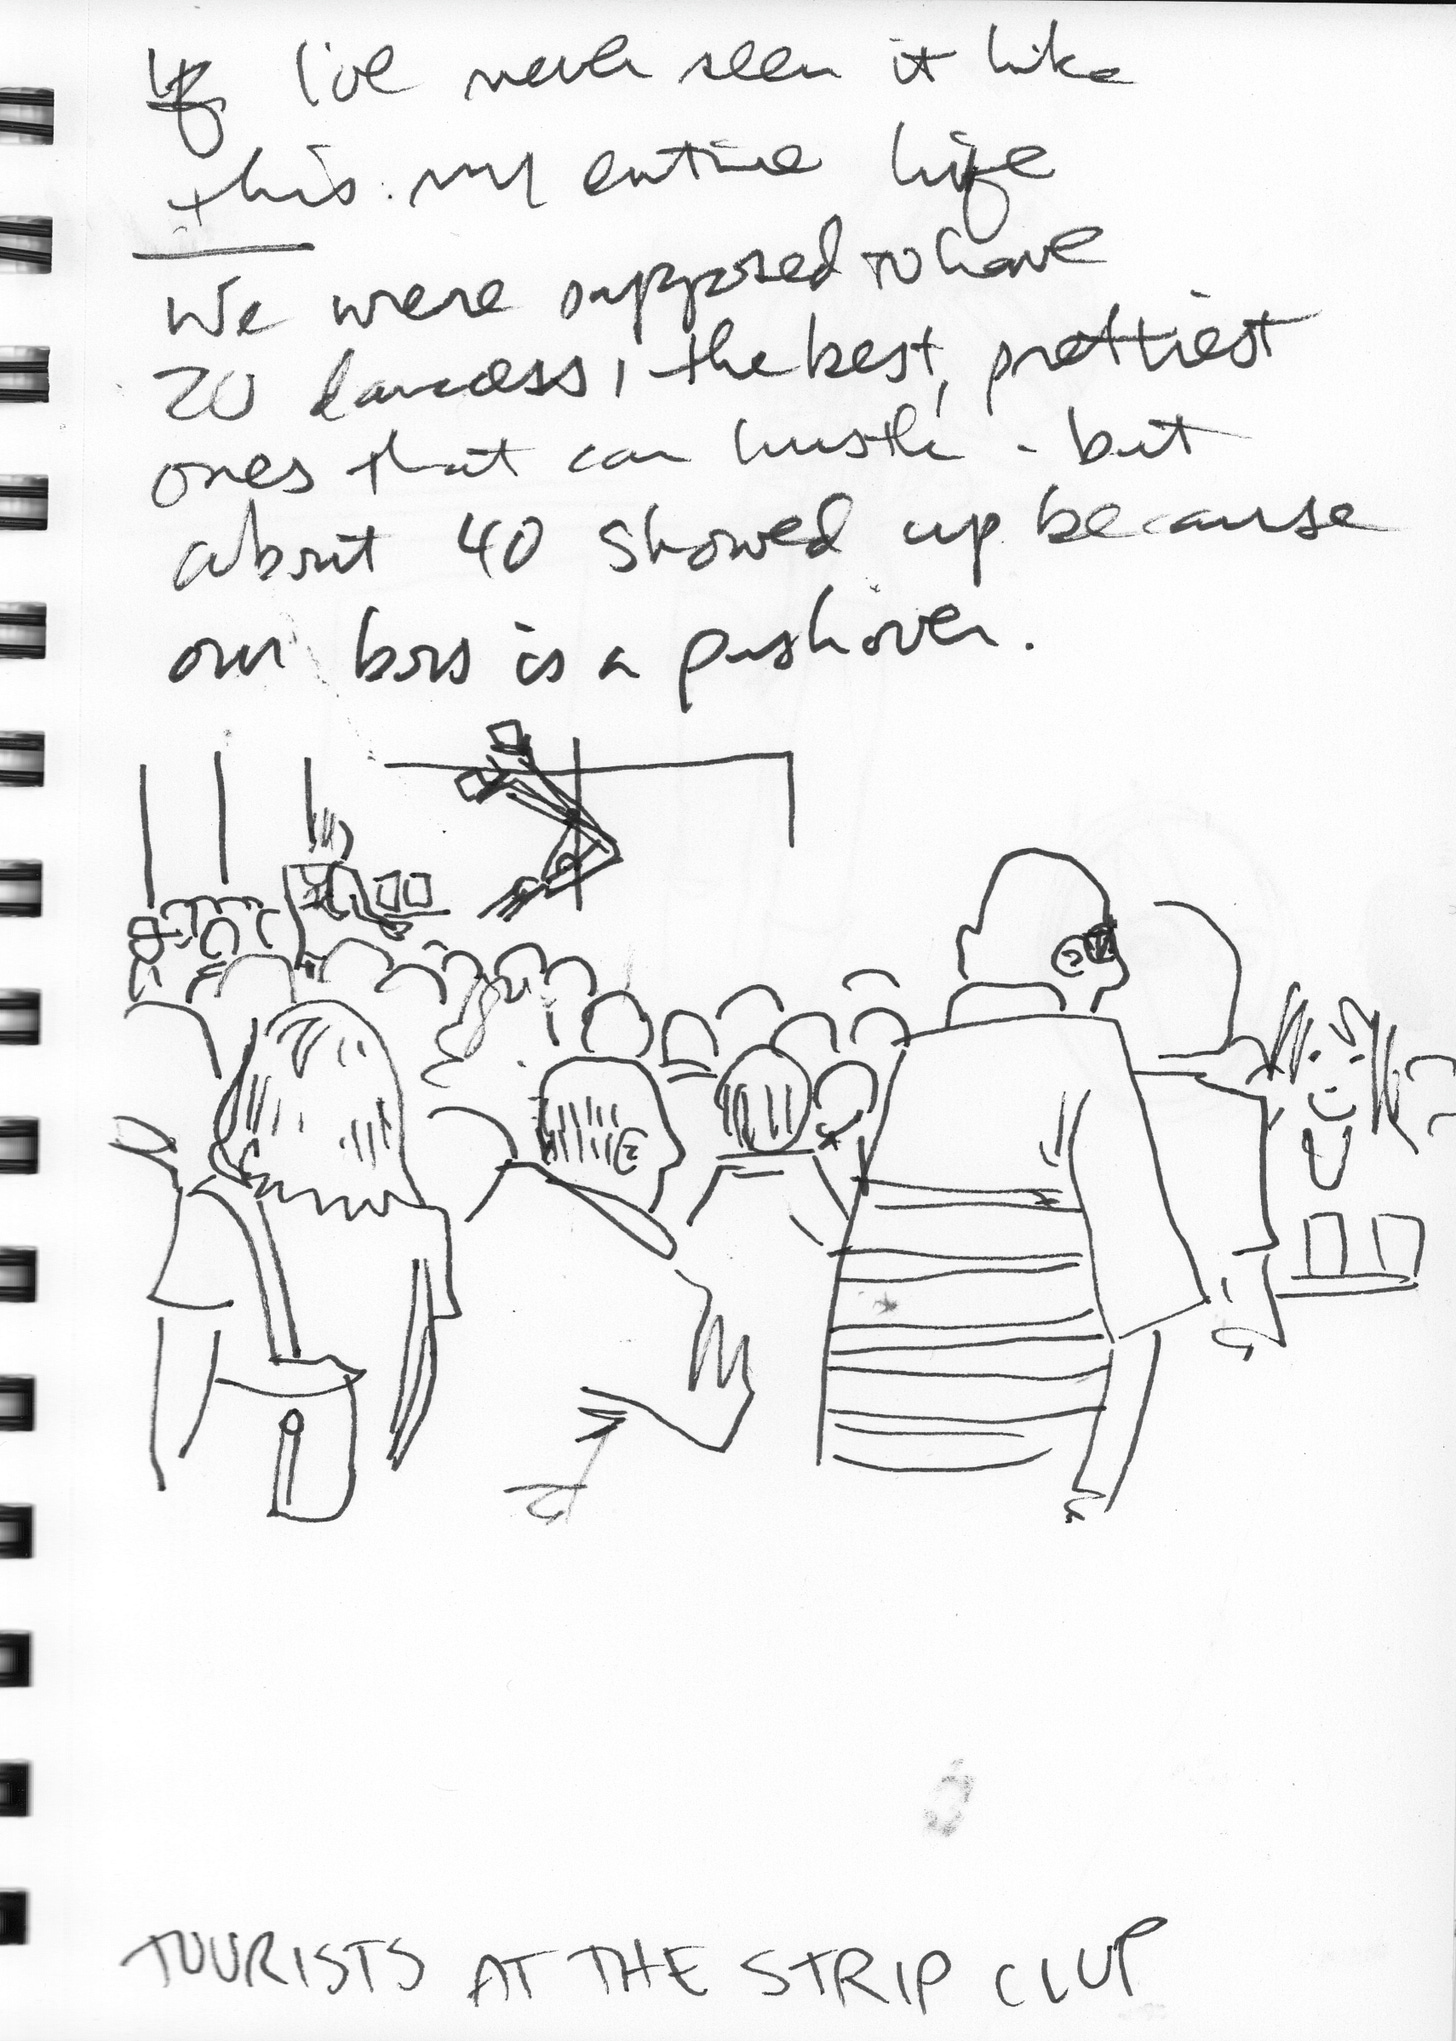 If I've never seen it like
this. my entire life
We were supposed to have
20 dancers, the best, prettiest
ones that can hustle - but
about 40 showed up because
our boss is a pushover.
TOURISTS AT THE STRIP CLUP